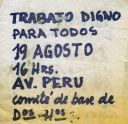 TRABAJO DIGNO
PARA TODOS
19 AGOSTO
16 Hrs.
AV. PERU
comité de base de
Dos Hos.